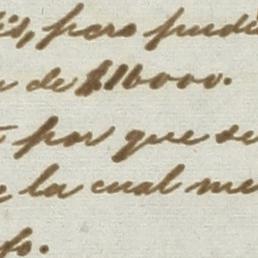 és, pero pudi
de $16000.
por que se
la cual me
fo.